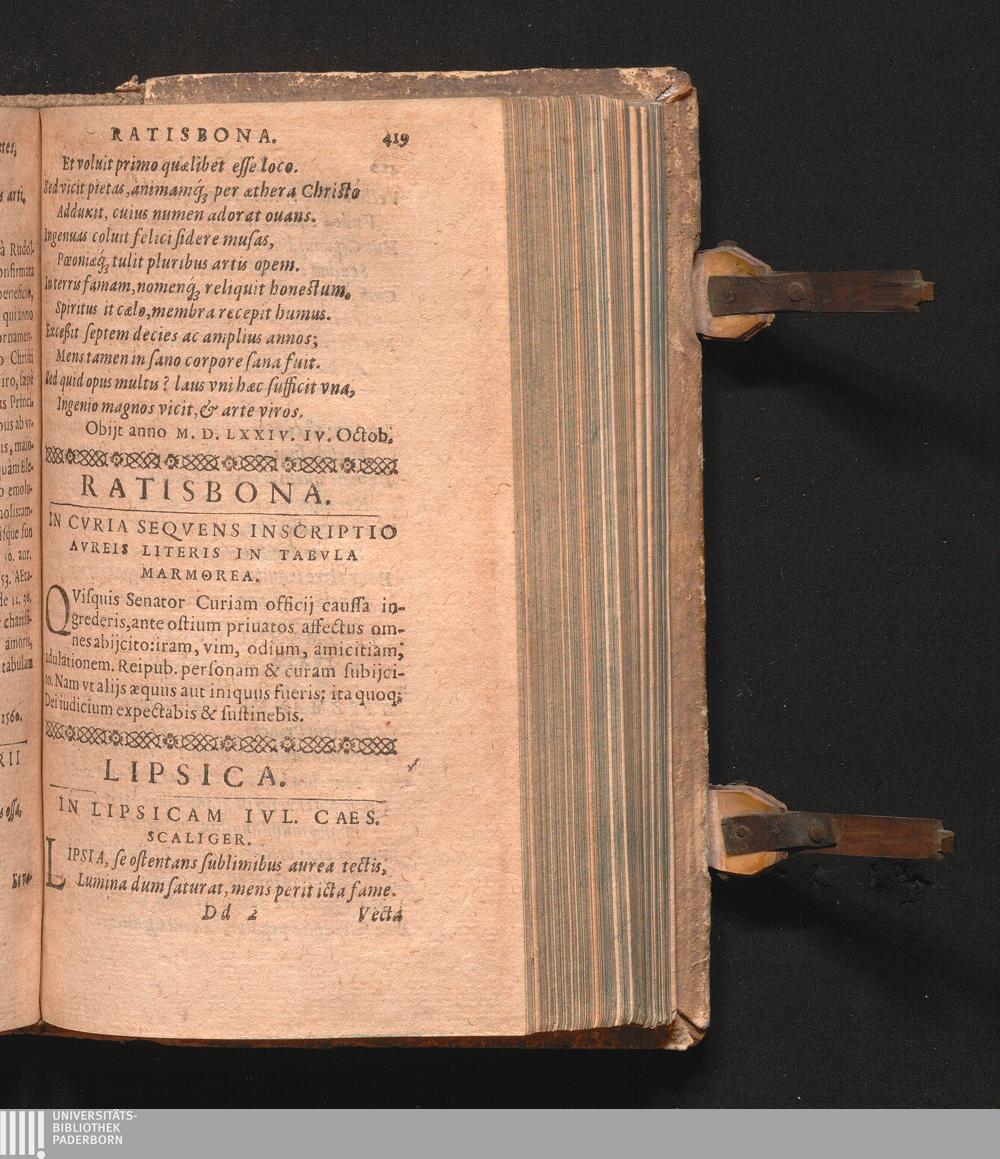 etes,
s arti,
à Rudol-
onfirmata
beneficio,
qui anno
ornamen-
o Christi
iro, sæpe
is Princi-
ous ab vr-
is, maio-
quàm Ele-
o emolu-
noliscam-
isque suo
60. aur.
53. AEta-
de 11. 98.
charissi-
amoris,
tabulam
1560.
RII
s ossa,
Et vo-
RATISBONA. 419
Et voluit primo quælibet esse loco.
Sed vicit pietas, animamq́ꝫ per æthera Christo
Adduxit, cuius numen adorat ouans.
Ingenuas coluit felici sidere musas,
Pæoniæq́ꝫ tulit pluribus artis opem.
In terris famam, nomenq́ꝫ reliquit honestum,
Spiritus it cælo, membra recepit humus.
Exceßit septem decies ac amplius annos;
Mens tamen in sano corpore sana fuit.
Sed quid opus multus? laus vni hæc sufficit vna,
Ingenio magnos vicit, & arte viros.
Obijt anno M. D. LXXIV. IV. Octob.
RATISBONA.
IN CVRIA SEQVENS INSCRIPTIO
AVREIS LITERIS IN TABVLA
MARMOREA.
QVisquis Senator Curiam officij caussa in-
grederis, ante ostium priuatos affectus om-
nes abijcito: iram, vim, odium, amicitiam,
adulationem. Reipub. personam & curam subijci-
to. Nam vt alijs æquus aut iniquus fueris: ita quoqꝫ
Dei iudicium expectabis & sustinebis.
LIPSICA.
IN LIPSICAM IVL. CAES.
SCALIGER.
LIPSIA, se ostentans sublimibus aurea tectis,
Lumina dum saturat, mens perit icta fame.
Dd 2 Vecta
UNIVERSITÄTS-
BIBLIOTHEK
PADERBORN